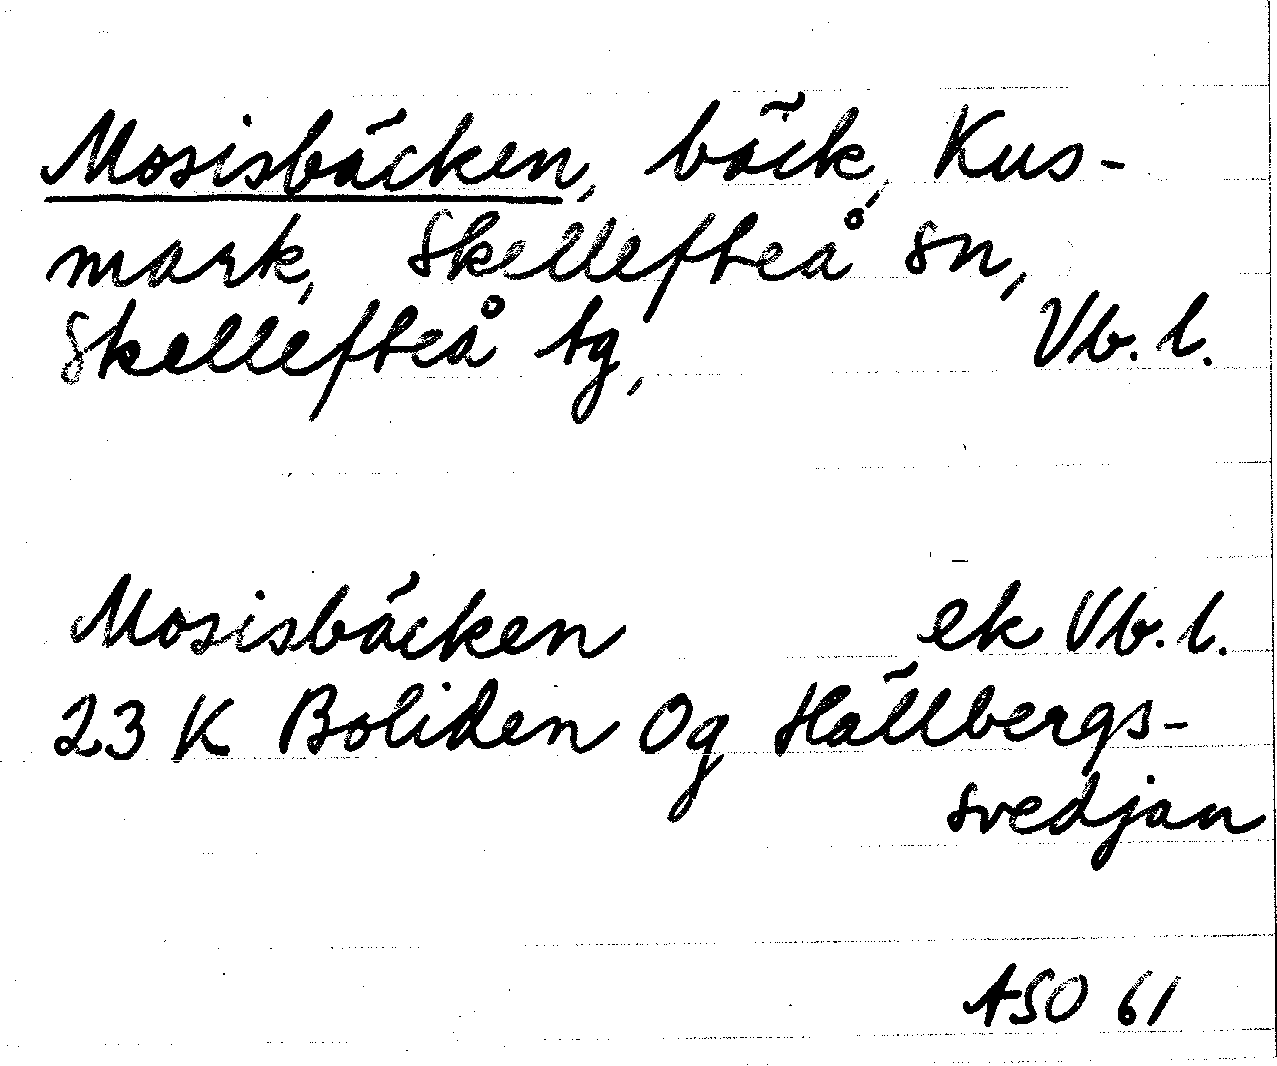 Mosisbäcken, bäck, Kus-
mark, Skellefteå sn,
Skellefteå tg, Vb. l.
Mosisbäcken ek Vb. l.
23 K Boliden Og Hällbergs-
svedjan
ASO 61